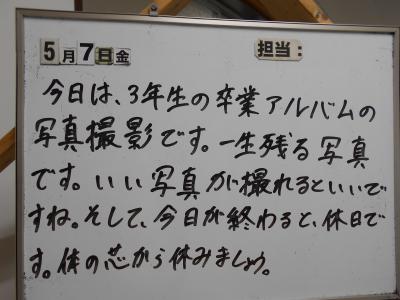 5月7日金 担当:
今日は、3年生の卒業アルバムの
写真撮影です。一生残る写真
です。いい写真が撮れるといいで
すね。そして、今日が終わると、休日で
す。体の芯から休みましょう。